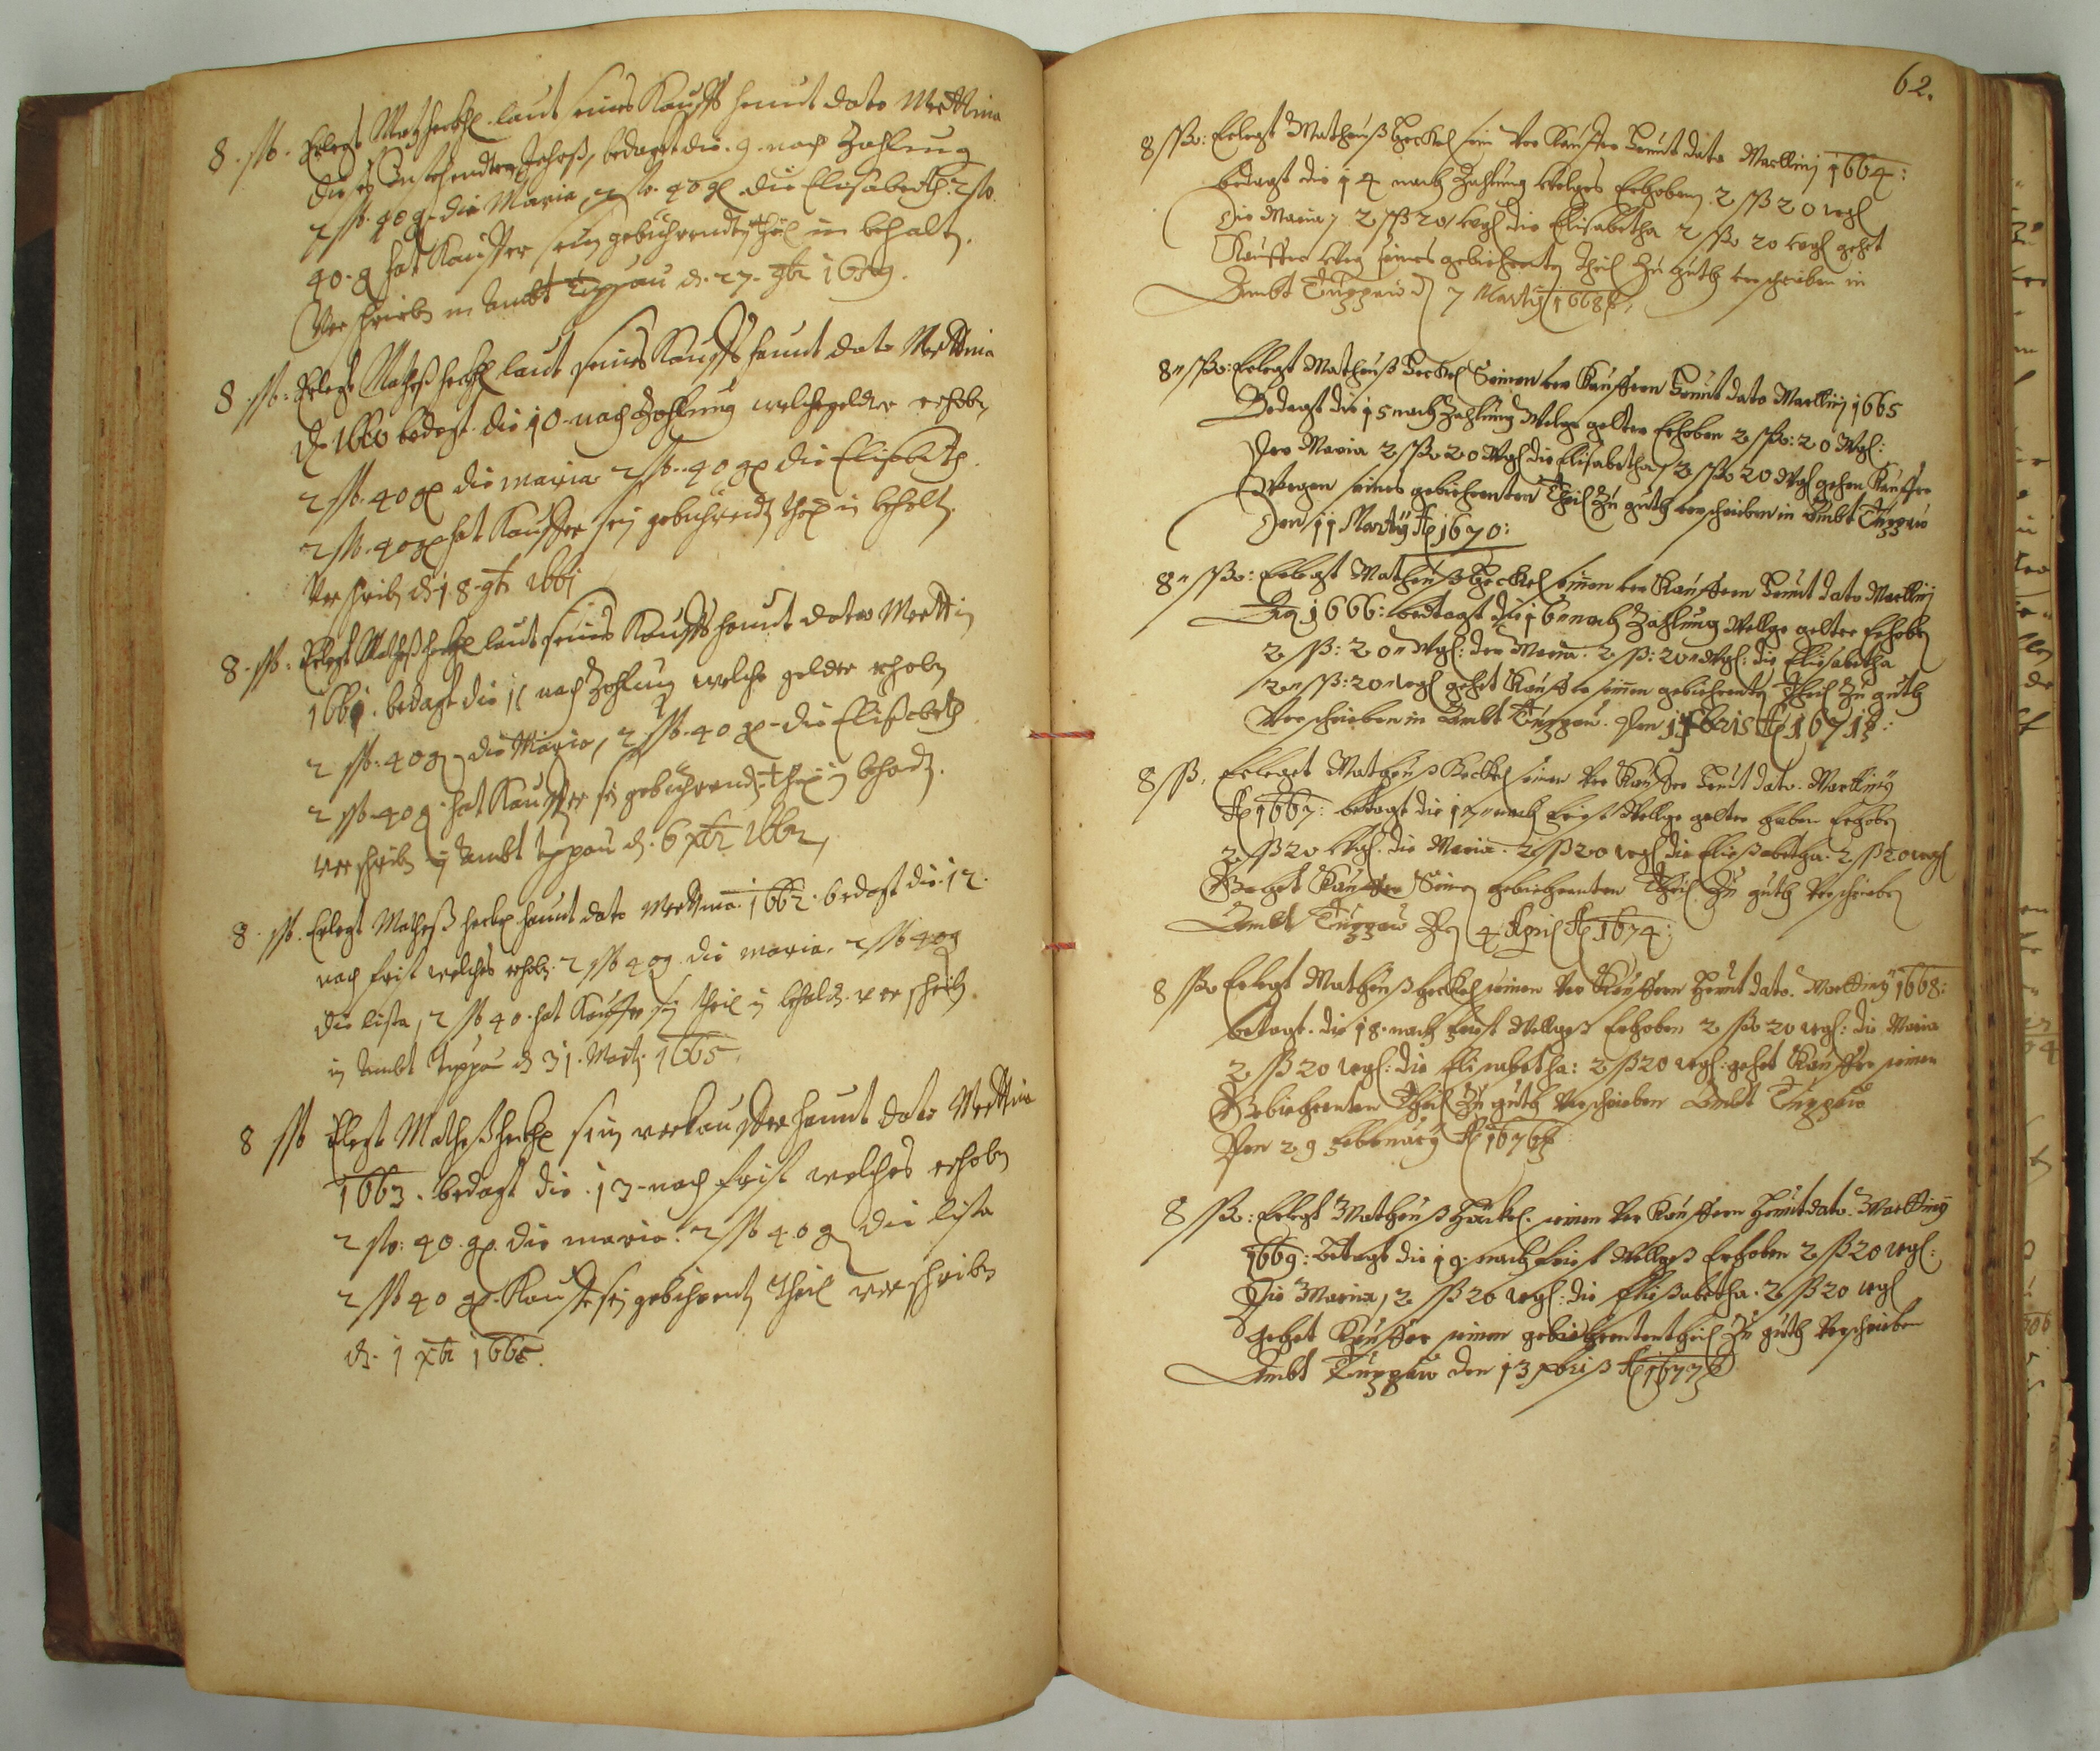 8. ßo. Erlegt Matz heckhl laut seines Kauffs heunt dato Marttini
dieses Instehendten Jahrß, bedagt die .9. nach Zahlung
2 ßo. 40 gl die Maria, 2 ßo. 40 gl die Elisabeth: 2 ßo.
40. g hat Kauffer sein gebührendten theil in behalten.
Verschrieben im Ambt Tuppau d. 27. 9br 1659.
8. ßo. Erlegt Matheß heckhl laut seines Kauffs heunt dato Marttini
Ao 1660 bedagt die 10. nach Zahlung welche gelder erhoben
2 ßo. 40 gl die maria. 2 ßo. 40 gl die Elisabeth
2 ßo. 40 gl hat Kauffer sein gebührendten theil in behalten.
Verschrieben d. 18. 9br 1661
8. ßo. Erlegt Matheß heckhl laut seines Kauffs heunt dato Marttini
1661. bedagt die 11 nach Zahlung welche gelder erhoben
2 ßo: 40 g die Maria, 2 ßo. 40 gl die Elisabeth
2 ßo. 40 g. hat Kauffer sein gebührendten theil in behalten.
verschrieben im Ambt Tuppau d. 6 xbr 1662,
8. ßo. Erlegt Matheß heckhl heunt dato Marttini 1662. bedagt die .12.
nach frist welches erhoben 2 ßo 40 g. die maria. 2 ßo 40 g
die lisla, 2 ßo 40. hat Kauffer sein theil in behalten. verschrieben
im Ambt Tuppau d 31. Marti 1665.
8 ßo Erlegt Matheß heckhl sein verkauffer heunt dato Marttini
1663. bedagt die .13. nach frist welches erhoben
2 ßo: 40. gl. die maria. 2 ßo 40 g die lisla
2 ßo 40 gl. Kauffer sein gebihrenten theil verschrieben
d. 1 xbr 1665.
62.
8 ßo: Erlegt Matheuß Heckel sein Ver Kauffer Heunt dato Martiny 1664:
bedagt die 14 nach Zahlung welges Erhoben 2 ßo 20 wgl
die Maria, 2 ßo 20 wgl die Elisabetha 2 ßo 20 wgl gehet
Kauffer weg seines gebiehrenten Theil Zu guth verschrieben in
Ambt Tuppau d 7 Marty 1668
8 ßo: Erlegt Matheuß Heckel Seinen ver Kauffern Heunt dato Martiny 1665
Bedagt die 15 nach Zahlung Welge gelter Erhoben 2 ßo: 20 Wgl:
Der Maria 2 ßo 20 Wgl die Elisabetha 2 ßo 20 Wgl gehen Kauffer
Wegen seines gebiehrenten Theil Zu guth verschrieben in Ambt Tuppau
Den 11 Marty Ao 1670:
8 ßo: Erlegt Matheuß Heckel seinen ver Kauffern Heunt dato Martiny
Ao 1666: bedtagt die 16 nach Zahlung Wellge gelter Erhoben
2 ßo: 20 Wgl: der Maria. 2 ßo: 20 Wgl: die Eliesabetha
2 ßo: 20 wgl gehet Kauffer seinen gebiehrenten Theil Zu guth
Verschrieben in Ambt Tuppau. Den Xbris Ao 1671
8 ßo. Erleget Matheuß Heckel seinen Ver Kauffer Heunt dato. Martiny
Ao 1667: betagt die 17 nach frist Wellge gelter haben Erhoben
2 ßo 20 Wgl. die Maria. 2 ßo 20 wgl die Eliesabetha. 2 ßo 20 wgl
Gehet Kauffer Seinen gebiehrenten Theil Zu guth Verschrieben
Ambt Tuppau Den 4 April Ao 1674
8 ßo Erlegt Matheuß heckel seinen Ver Kauffern Heunt dato. Martiny 1668:
betagt. die 18. nach frist Wellges Erhoben 2 ßo 20 wgl: die Maria
2 ßo 20 wgl: die Elisabetha: 2 ßo 20 wgl. gehet Kauffer seinen
Gebiehrenten Theil Zu guth Verschrieben Ambt Tuppau
Den 29 Februarÿ Ao 1676
8 ßo: Erlegt Matheuß Häckel. seinen Ver Kauffern Heunt dato. Martiny
1669: Betagt die 19. nach frist Wellges Erhoben 2 ßo 20 wgl:
Die Maria, 2 ßo 20 wgl: die Eliesabetha. 2 ßo 20 wgl
gehet Kauffer seinen gebiehrenten theil Zu guth Verschrieben
Ambt Tuppau den 13 xbriß Ao 1677